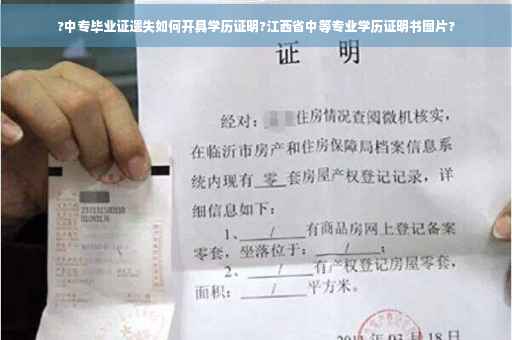 ?中专毕业证遗失如何开具学历证明?江西省中等专业学历证明书图片?
证 明
经对: 住房情况查阅微机核实,
在临沂市房产和住房保障局档案信息系
统内现有 零 套房屋产权登记记录,详
细信息如下:
1、 / 有商品房网上登记备案
零套,坐落位于: / ;
2、 / 有产权登记房屋零套,
面积: / 平方米。